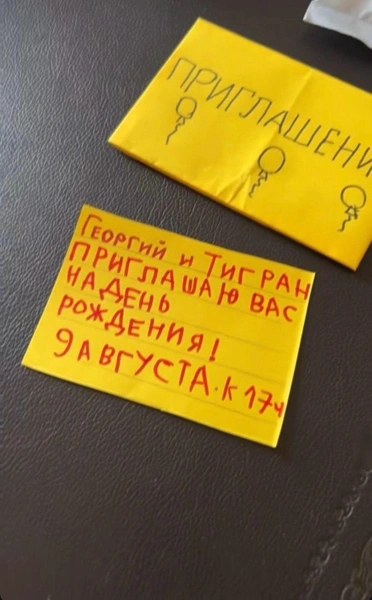 ПРИГЛАШЕНИ
ГЕОРГИЙ и ТИГРАН
ПРИГЛАШАЮ ВАС
НА ДЕНЬ
РОЖДЕНИЯ!
9 АВГУСТА. К 17Ч